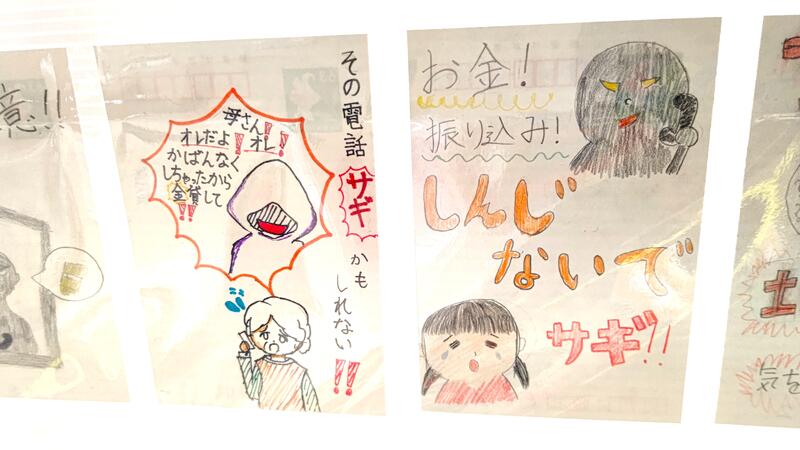 意!!
その電話
サギ
かも
しれない!!
母さん!
オレだよ!オレ!
かばんなく
しちゃったから
金貸して
!!
お金!
振り込み!
しんじ
ないで
サギ!!
土
気を